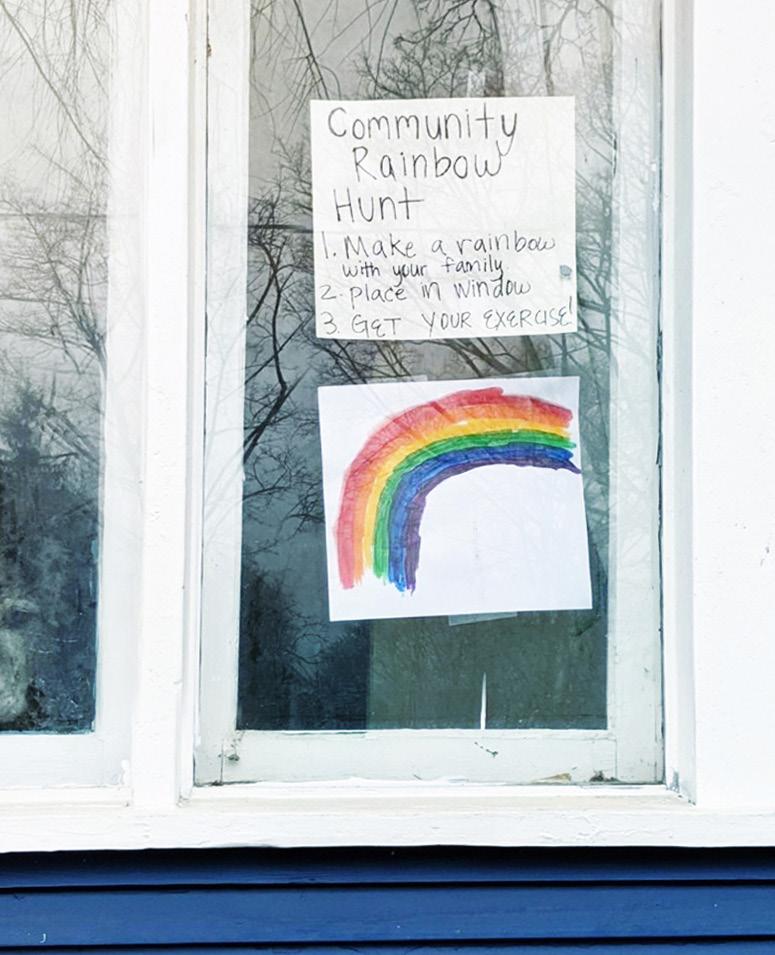 Community
Rainbow
Hunt
1. Make a rainbow
with your family
2. Place in window
3. GET YOUR EXERCISE!